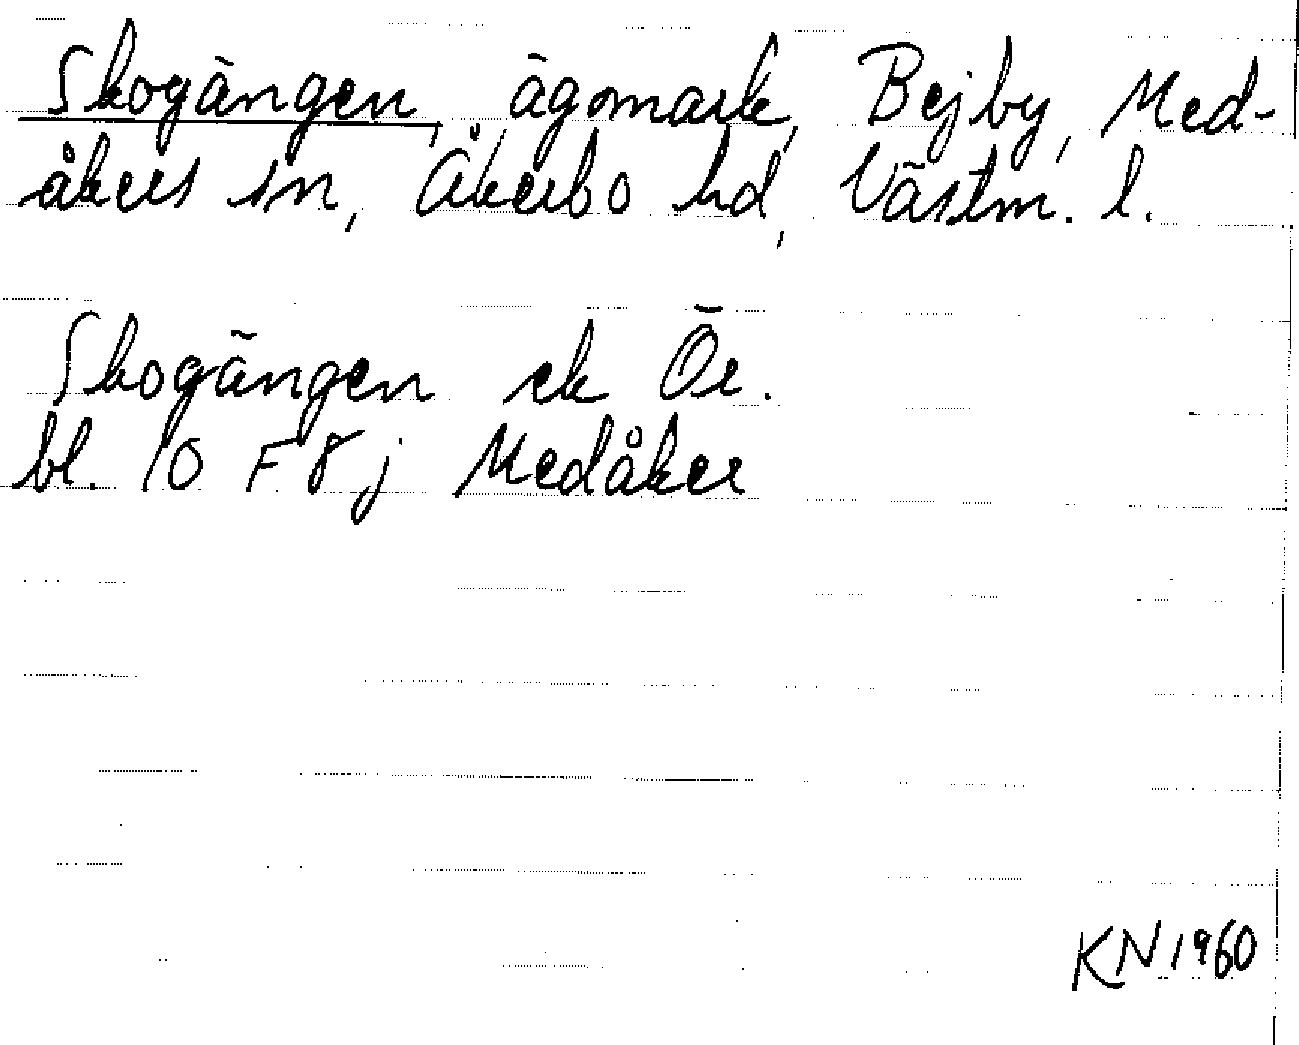 Skogängen, ägomark, Bejby, Med-
åkers sn, Åkerbo hd, Västm. l.
Skogängen ek Ör.
bl. 10 F 8 j Medåker
KN 1960